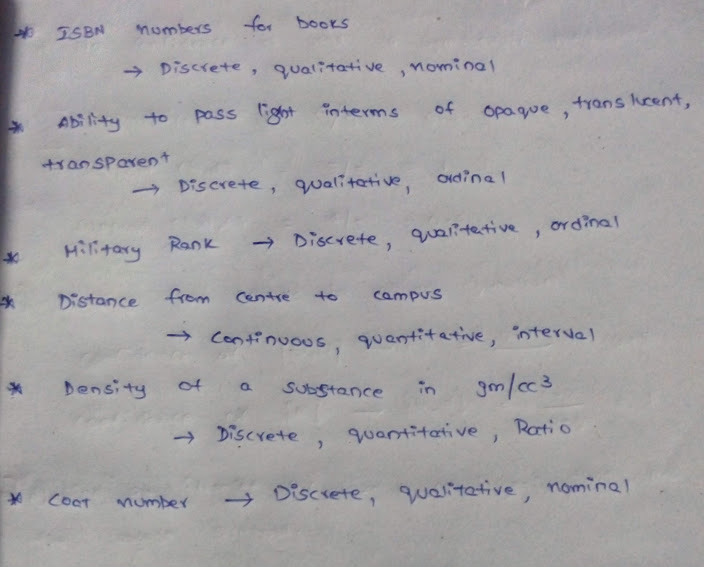 * ISBN numbers for books
→ Discrete, qualitative, nominal
* Ability to pass light interms of opaque, translucent,
transparent
→ Discrete, qualitative, ordinal
* Military Rank → Discrete, qualitative, ordinal
* Distance from centre to campus
→ continuous, quantitative, interval
* Density of a substance in gm/cc³
→ Discrete, quantitative, Ratio
* Coat number → Discrete, qualitative, nominal